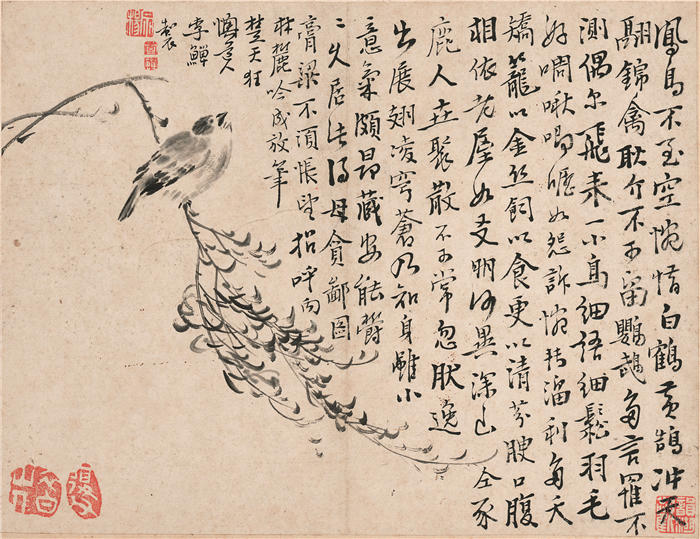 鳳鳥不至空惋惜白鶴黃鵠冲天
翮錦禽耿介不可留鸚鵡多言羅不
測偶尔飛来一小鳥細語細鬆羽毛
好啁啾唧如怨訴惋转溜利多夭
矯籠以金丝飼以食更以清芬腴口腹
相依老屋如友朋何異深山仝豕
鹿人生聚散不可常忽肰逸
出展翅凌穹蒼乃知身雖小
意氣頗昂藏安能欝
二久居此得毋貪鄙圖
膏粱不須悵望招呼向
林麓吟成放筆
楚天狂
懊道人
李鱓
製